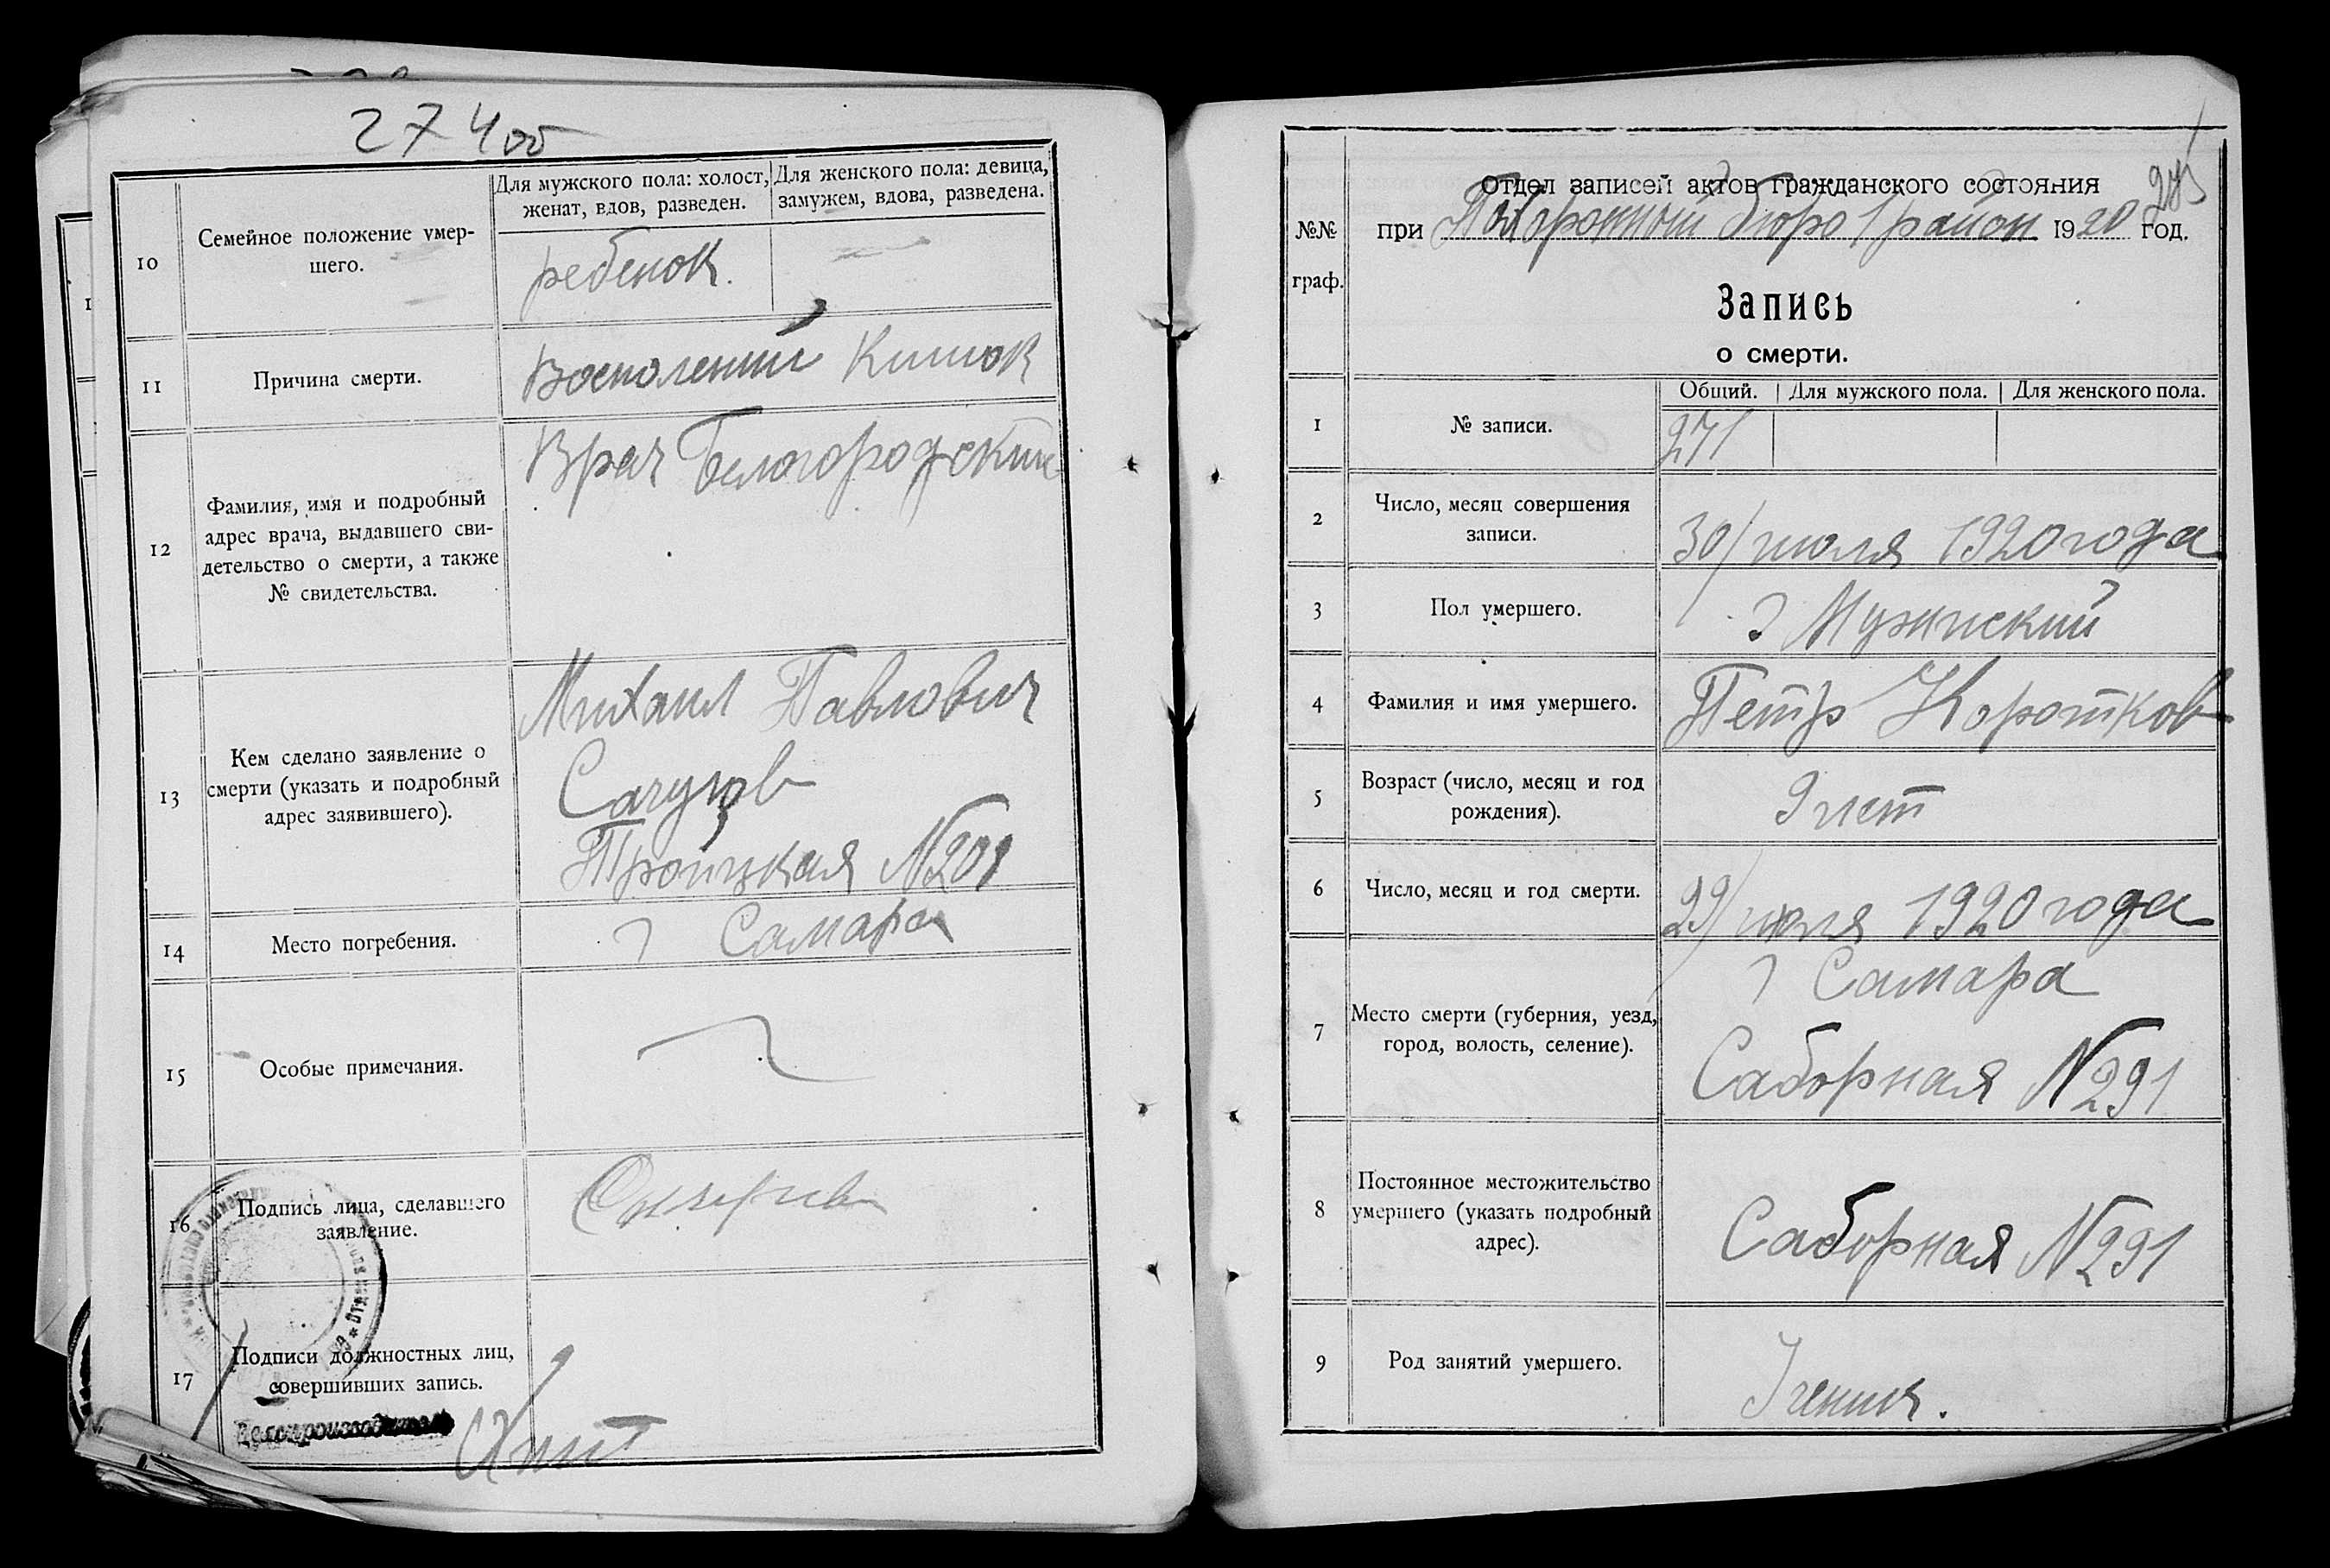 274 об
10
Семейное положение умер-
шего.
Для мужского пола: холост,
женат, вдов, разведен.
Для женского пола: девица,
замужем, вдова, разведена.
ребенок.
11
Причина смерти.
Воспалений Кишок
12
Фамилия, имя и подробный
адрес врача, выдавшего сви-
детельство о смерти, а также
№ свидетельства.
Врач Белогородский
13
Кем сделано заявление о
смерти (указать и подробный
адрес заявившего).
Михаил Павлович
Троицкая №201
14
Место погребения.
г Самара
15
Особые примечания.
16
Подпись лица, сделавшего
заявление.
17
Подписи должностных лиц,
совершивших запись.
Делопроизводитель
275
№№
граф.
Отдел записей актов гражданского состояния
при бюро 1 район 1920 год.
Запись
о смерти.
1
№ записи.
Общий.
Для мужского пола.
Для женского пола.
271
2
Число, месяц совершения
записи.
30/июля 1920 года
3
Пол умершего.
Мужиский
4
Фамилия и имя умершего.
Петр Коротков
5
Возраст (число, месяц и год
рождения).
9 лет
6
Число, месяц и год смерти.
29/июля 1920 года
7
Место смерти (губерния, уезд,
город, волость, селение).
г Самара
Саборная №291
8
Постоянное местожительство
умершего (указать подробный
адрес).
Саборная №291
9
Род занятий умершего.
Ученик.